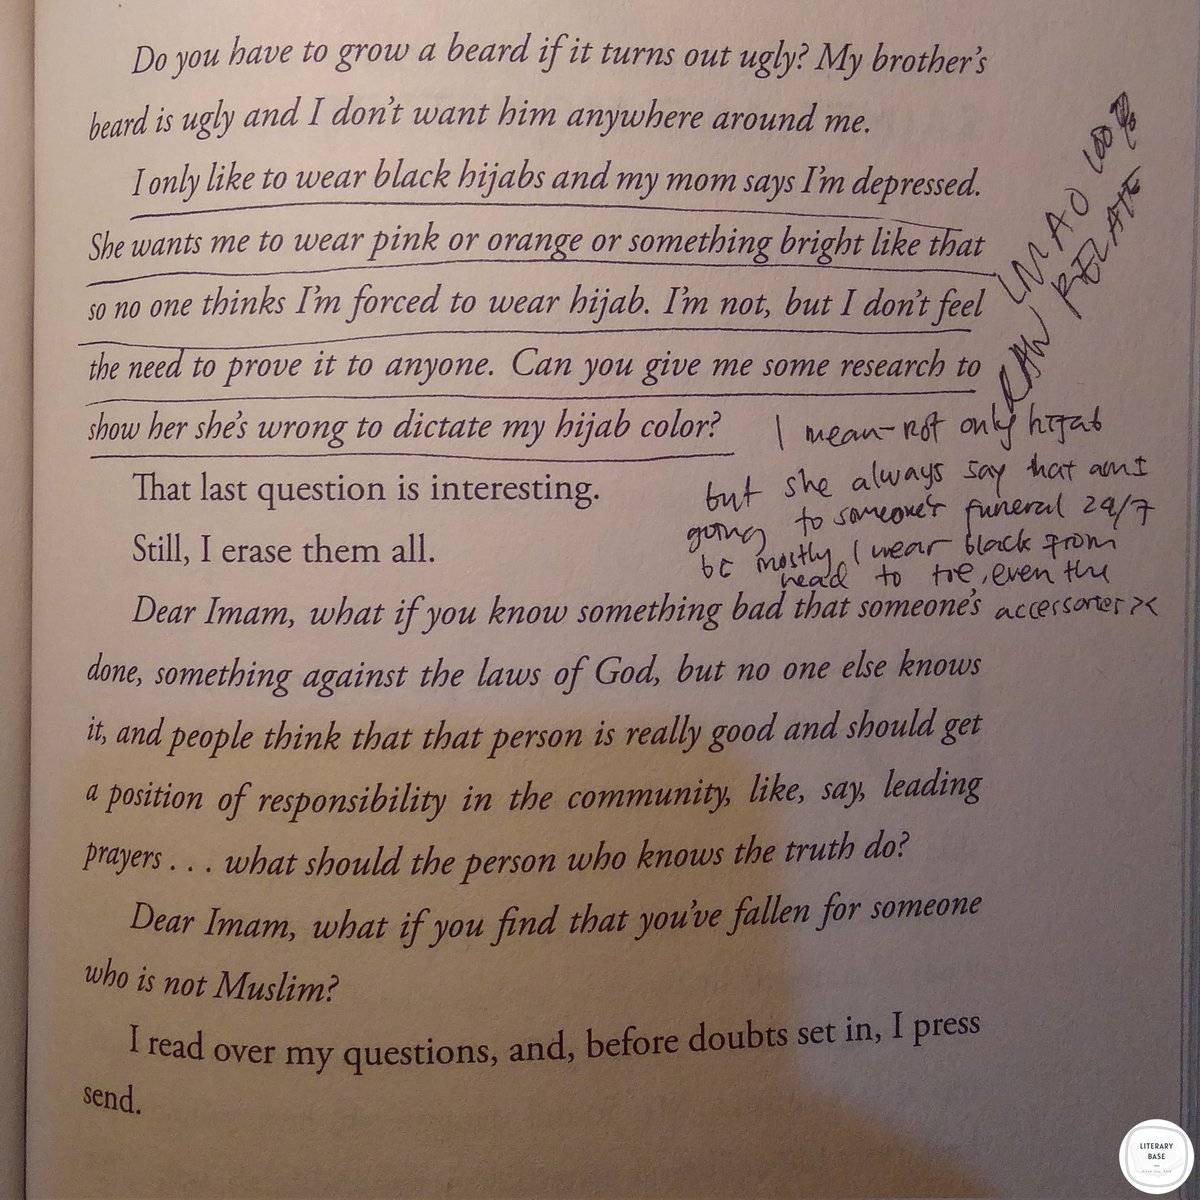 Do you have to grow a beard if it turns out ugly? My brother's
beard is ugly and I don't want him anywhere around me.
I only like to wear black hijabs and my mom says I'm depressed.
She wants me to wear pink or orange or something bright like that
so no one thinks I'm forced to wear hijab. I'm not, but I don't feel
the need to prove it to anyone. Can you give me some research to
show her she's wrong to dictate my hijab color?
LMAO 100%
RELATE
I mean-not only hijab
but she always say that am I
going to someone's funeral 24/7
bc mostly I wear black from
head to toe, even the
accessories ><
That last question is interesting.
Still, I erase them all.
Dear Imam, what if you know something bad that someone's
done, something against the laws of God, but no one else knows
it, and people think that that person is really good and should get
a position of responsibility in the community, like, say, leading
prayers . . . what should the person who knows the truth do?
Dear Imam, what if you find that you've fallen for someone
who is not Muslim?
I read over my questions, and, before doubts set in, I press
send.
LITERARY
BASE